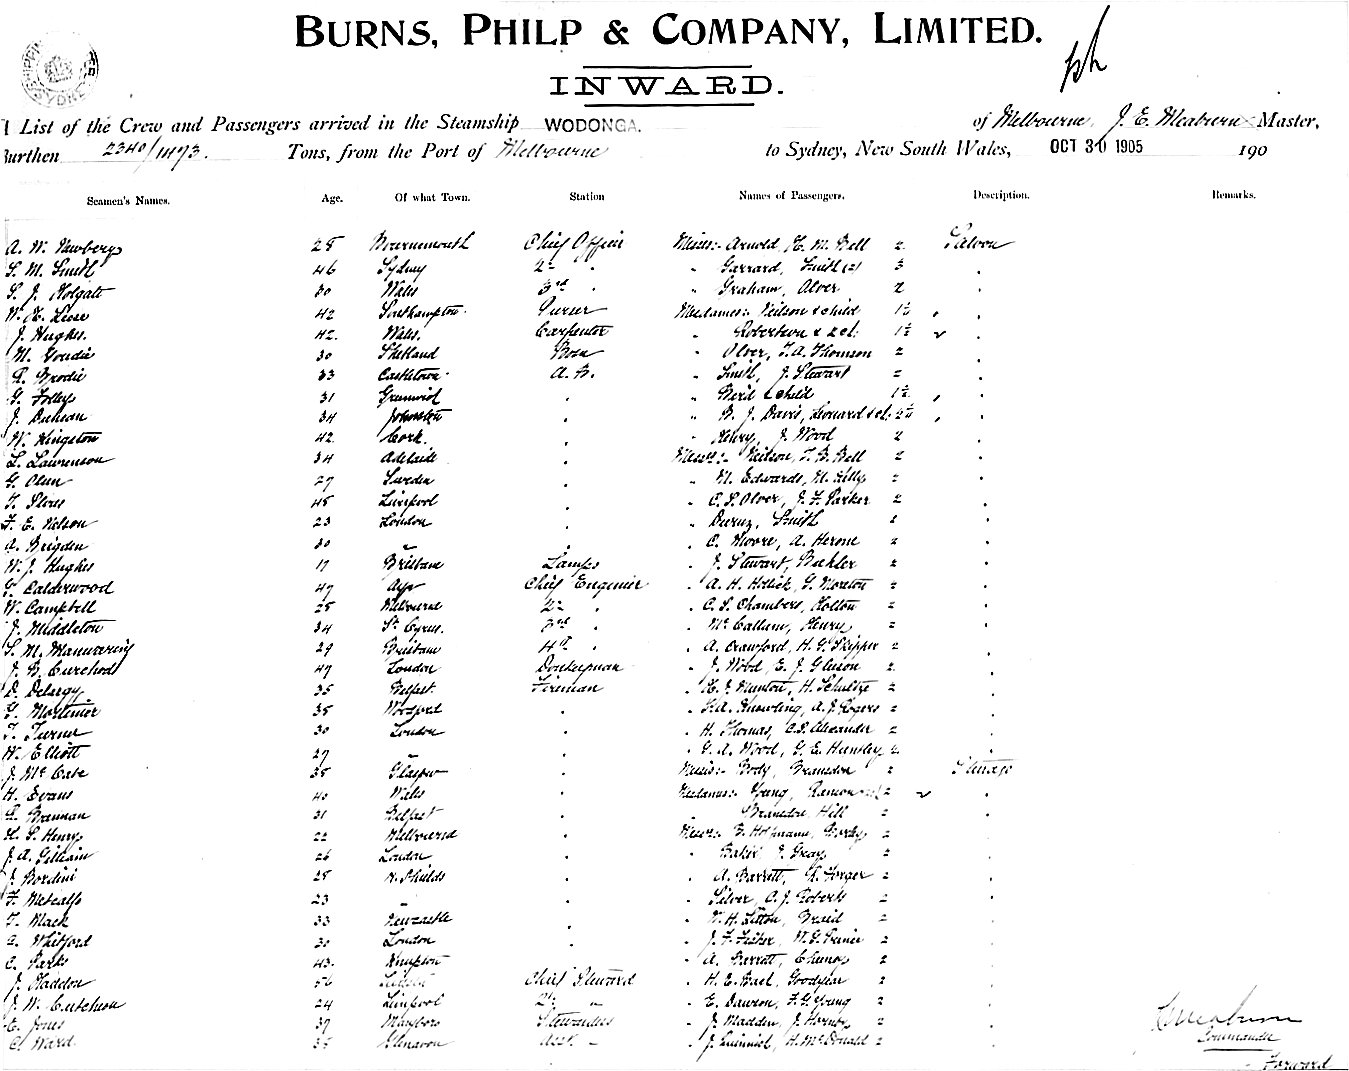 BURNS, PHILP & COMPANY, LIMITED.
INWARD.
A List of the Crew and Passengers arrived in the Steamship WODONGA. of Melbourne, J. E. Meaburn Master,
Burthen 2340/1473. Tons, from the Port of Melbourne to Sydney, New South Wales, OCT 30 1905 190
Seamen's Names. Age. Of what Town. Station Names of Passengers. Description. Remarks.
A. W. Newbery 28 Bournemouth Chief Officer Misses:- Arnold, H. M. Bell 2 Saloon
S. M. Smith 46 Sydney 2nd " " Garrard, Smith (2) 3
S. J. Holgate 30 Wales 3rd " " Graham, Olver 2
42 Southampton Purser Mesdames:- Neilson & child 1½
J. Hughes. 42. Wales. Carpenter " Robertson & 2 ch. 1½
M. Goudie 30 Shetland Bosn " Olver, J. A. Thomson 2
R. Brodie 33 Castletown A. B. " Smith, J. Stewart 2
G. Folley 31 Greenwich " " & child 1½
J. Duncan 34 Johnston " " B. J. Davis, Leonard & ch. 2½
W. Kingston 42 Cork. " " Henry, J. Wood 2
L. Lawrenson 34 Adelaide " Messrs:- Neilson, T. B. Bell 2
G. Olsen 27 Sweden " " M. Edwards, M. Kelly 2
T. 48 Liverpool " " C. S. Olver, J. F. Parker 2
F. E. Nelson 23 London " " Smith 2
A. Brigden 30 " " " C. Moore, A. Herone 2
W. J. Hughes 17 Brisbane Lamps " J. Stewart, 2
G. Calderwood 47 Ayr Chief Engineer " A. H. Hollick, G. Moreton 2
W. Campbell 28 Melbourne 2nd " " C. S. Chambers, Holton 2
J. Middleton 34 St. Cyrus. 3rd " " McCallum, Henry 2
S. M. Manwering 29 Brisbane 4th " " A. Crawford, H. G. Skipper 2
J. B. Curchods 47 London Donkeyman " J. Wood, E. J. Gleeson 2
D. Delargy 35 Belfast. Fireman " H. J. Munton, H. Schultze 2
G. Mortimer 38 Woodford " " S. A. Knowling, A. J. Rogers 2
T. Turner 30 London " " H. Thomas, C. S. Alexander 2
W. Elliott 27 " " " G. A. Wood, G. E. Huntley 2
J. McCabe 38 Glasgow " Misses:- Body, Bransdon 2 Steerage
H. Evans 40 Wales " Mesdames:- Young, 2
R. Brennan 31 Belfast " " Bransdon, Hill 2
H. S. Henry 22 Melbourne " Messrs:- E. Hofmann, 2
J. A. Gilliam 26 London " " Baker, J. Gray 2
J. Bordini 28 N. Shields " " A. Barratt, R. Forger 2
F. Metcalfe 23 " " " Silver, A. J. Roberts 2
T. Mack 33 Newcastle " " W. H. Litton, Braid 2
A. Whitford 30 London " " J. F. Fisher, W. G. Prince 2
C. Parks 43. " " A. Barratt, 2
J. Haddon 56 Chief Steward " H. E. Bach, Goodyear 2
J. W. Cutcheon 24 Liverpool 2nd " " E. Dawson, F. G. Young 2
E. Jones 37 Maryboro Stewardess " J. Madden, J. Hornby 2
C. Ward. 35 Glenavon Asst " " J. H. McDonald 2
J. E. Meaburn
Commander
Forward